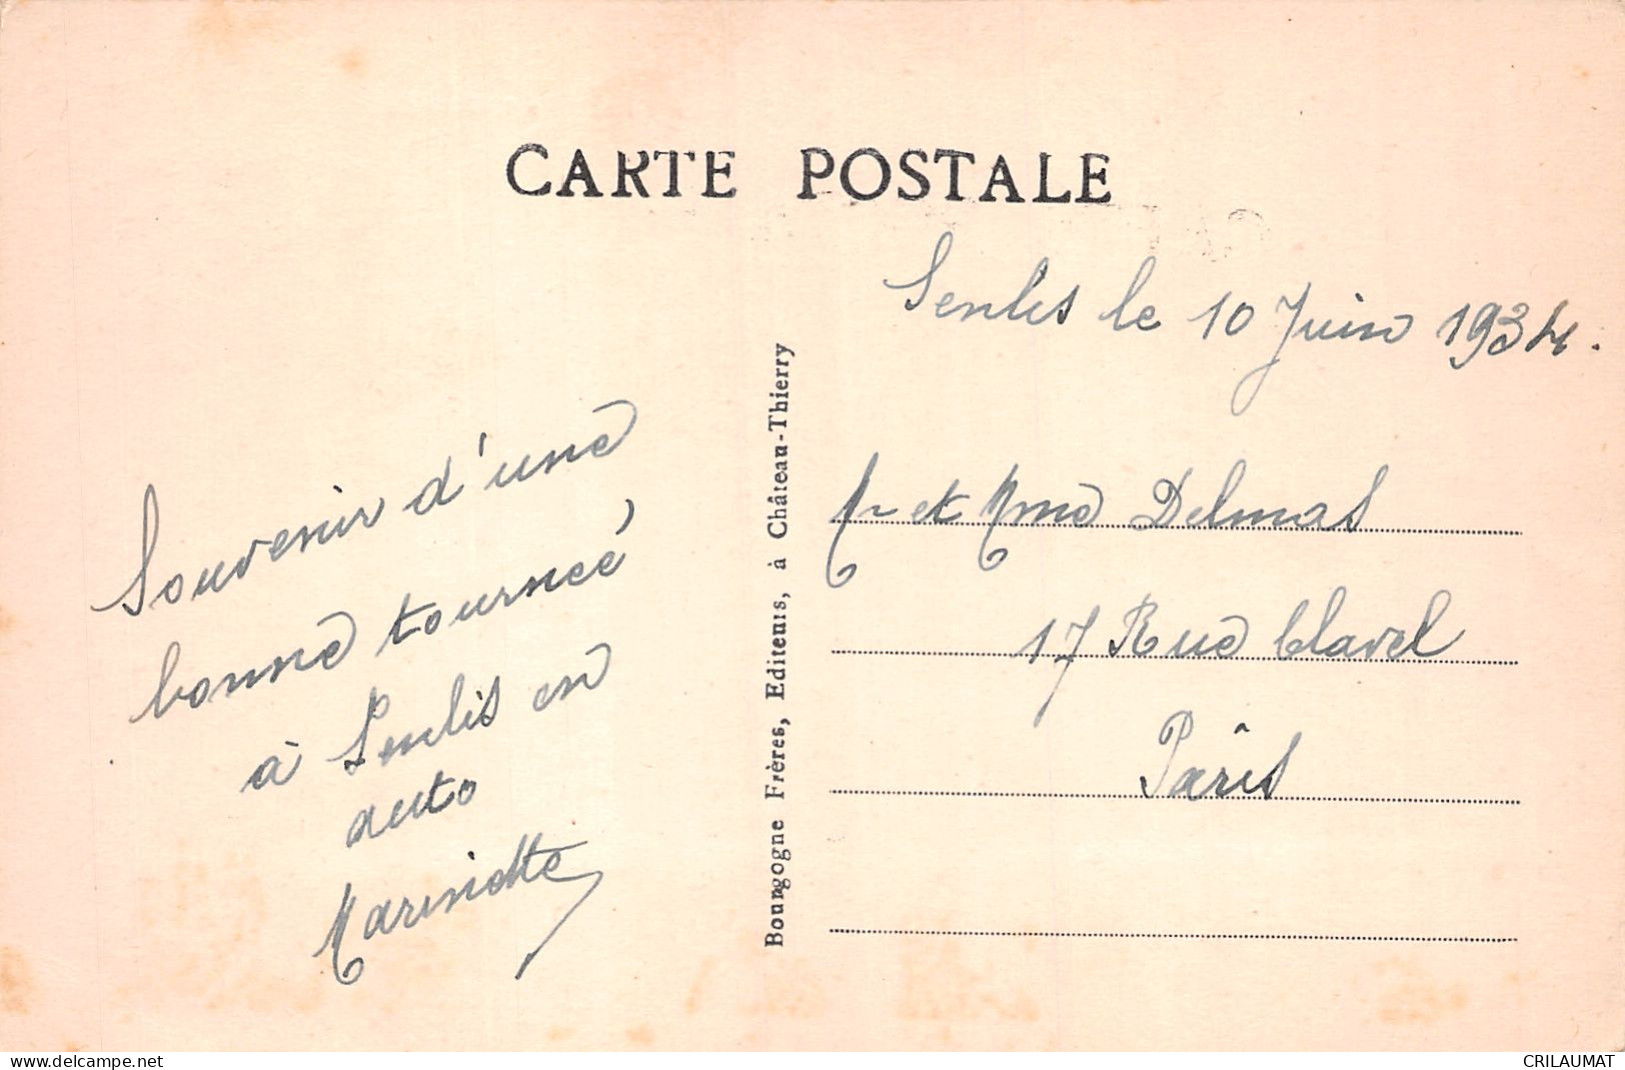 CARTE POSTALE
Senlis le 10 Juin 1934.
Souvenir d'une
bonne tournée
à Senlis en
auto
Marinette
Bourgogne Frères, Editeurs, à Château-Thierry
Mr et Mme Delmas
17 Rue Clavel
Pâris
delcampe.net
CRILAUMAT